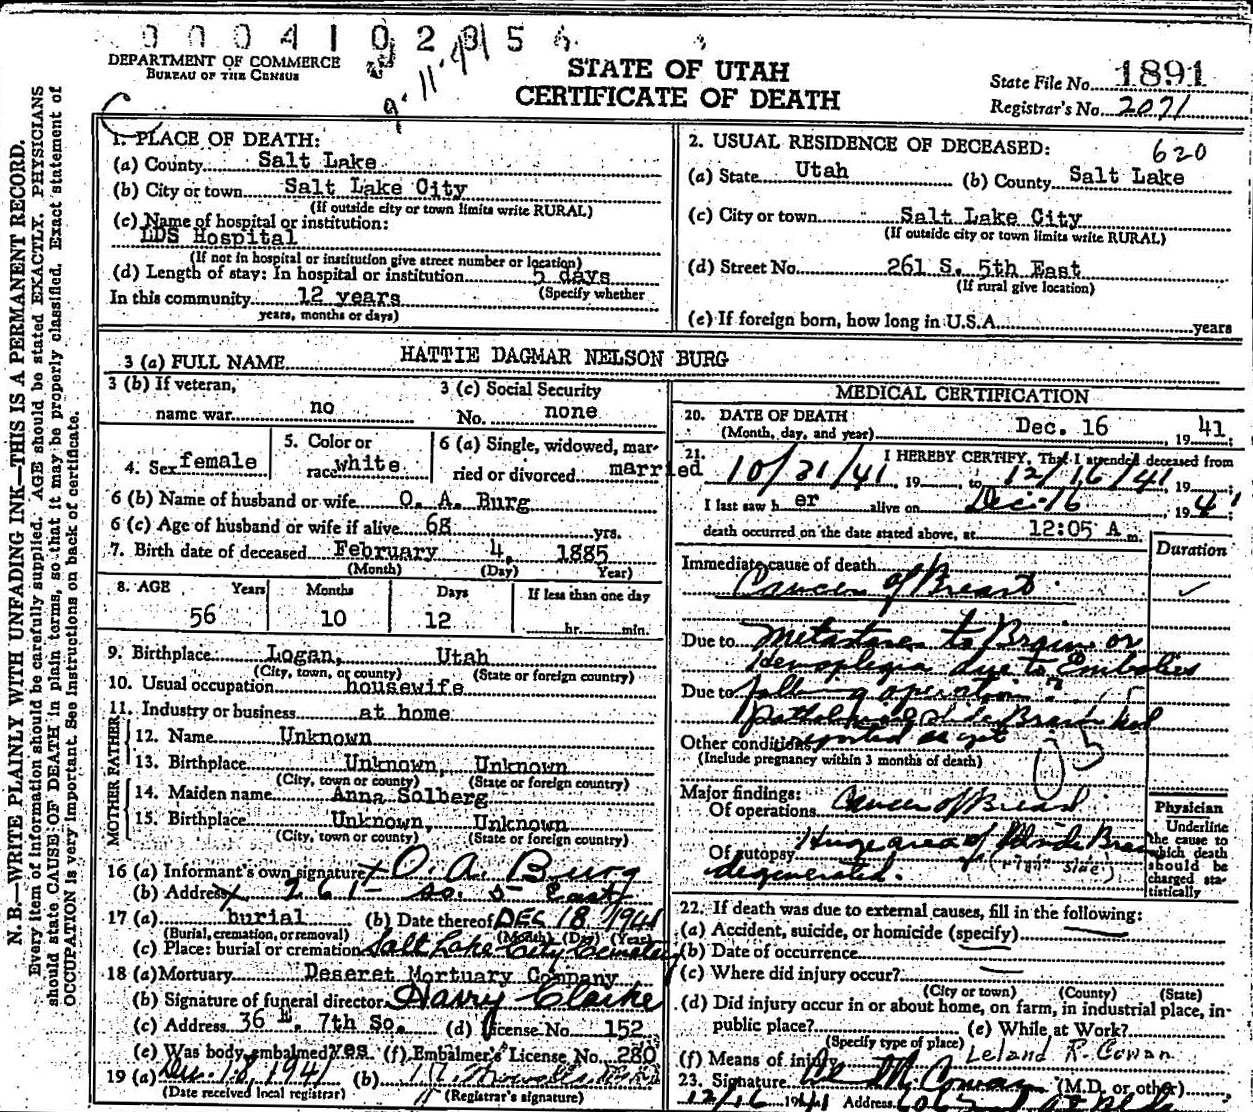 0 0 0 4 1 0 2 8 5
DEPARTMENT OF COMMERCE
BUREAU OF THE CENSUS
9-11-41
STATE OF UTAH
CERTIFICATE OF DEATH
State File No. 1891
Registrar's No. 2071
N. B.—WRITE PLAINLY WITH UNFADING INK—THIS IS A PERMANENT RECORD.
Every item of information should be carefully supplied. AGE should be stated EXACTLY. PHYSICIANS
should state CAUSE OF DEATH in plain terms, so that it may be properly classified. Exact statement of
OCCUPATION is very important. See instructions on back of certificate.
1. PLACE OF DEATH:
(a) County Salt Lake
(b) City or town Salt Lake City
(If outside city or town limits write RURAL)
(c) Name of hospital or institution:
LDS Hospital
(If not in hospital or institution give street number or location)
(d) Length of stay: In hospital or institution 5 days
(Specify whether
In this community 12 years
years, months or days)
2. USUAL RESIDENCE OF DECEASED: 620
(a) State Utah (b) County Salt Lake
(c) City or town Salt Lake City
(If outside city or town limits write RURAL)
(d) Street No. 261 S. 5th East
(If rural give location)
(e) If foreign born, how long in U.S.A. years
3 (a) FULL NAME HATTIE DAGMAR NELSON BURG
3 (b) If veteran, 3 (c) Social Security
name war no No. none
4. Sex female 5. Color or race white 6 (a) Single, widowed, married or divorced married
6 (b) Name of husband or wife O. A. Burg
6 (c) Age of husband or wife if alive 68 yrs.
7. Birth date of deceased February 4, 1885
(Month) (Day) Year)
8. AGE Years Months Days If less than one day
56 10 12 hr. min.
9. Birthplace Logan, Utah
(City, town, or county) (State or foreign country)
10. Usual occupation housewife
11. Industry or business at home
FATHER
12. Name Unknown
13. Birthplace Unknown, Unknown
(City, town or county) (State or foreign country)
MOTHER
14. Maiden name Anna Solberg
15. Birthplace Unknown, Unknown
(City, town or county) (State or foreign country)
16 (a) Informant's own signature O. A. Burg
(b) Address 261 - So. 5 East
17 (a) burial (b) Date thereof DEC 18 1941
(Burial, cremation, or removal) (Month) (Day) (Year)
(c) Place: burial or cremation Salt Lake City Cemetery
18 (a) Mortuary Deseret Mortuary Company
(b) Signature of funeral director Harry Clarke
(c) Address 36 E. 7th So. (d) License No. 152
(e) Was body embalmed Yes (f) Embalmer's License No. 280
19 (a) Dec. 18, 1941 (b)
(Date received local registrar) (Registrar's signature)
MEDICAL CERTIFICATION
20. DATE OF DEATH
(Month, day, and year) Dec. 16, 1941
21. I HEREBY CERTIFY, That I attended deceased from
10/31/41, 19 to 12/16/41, 19
I last saw her alive on Dec-16, 1941
death occurred on the date stated above, at 12:05 A m.
Duration
Immediate cause of death
Cancer of Breast
Due to Metastases to Brain or
Hemoplegia due to Embolies
Due to following operation
Pathological slide Brain not
Other conditions reported as yet
(Include pregnancy within 3 months of death)
Major findings:
Of operations Cancer of Breast
Of autopsy Huge area of Brain
degenerated. (right side)
Physician
Underline
the cause to
which death
should be
charged sta-
tistically
22. If death was due to external causes, fill in the following:
(a) Accident, suicide, or homicide (specify)
(b) Date of occurrence
(c) Where did injury occur?
(City or town) (County) (State)
(d) Did injury occur in or about home, on farm, in industrial place, in-
public place? (e) While at Work?
(Specify type of place)
(f) Means of injury Leland R. Cowan
23. Signature Cowan (M.D. or other)
12/16 1941 Address